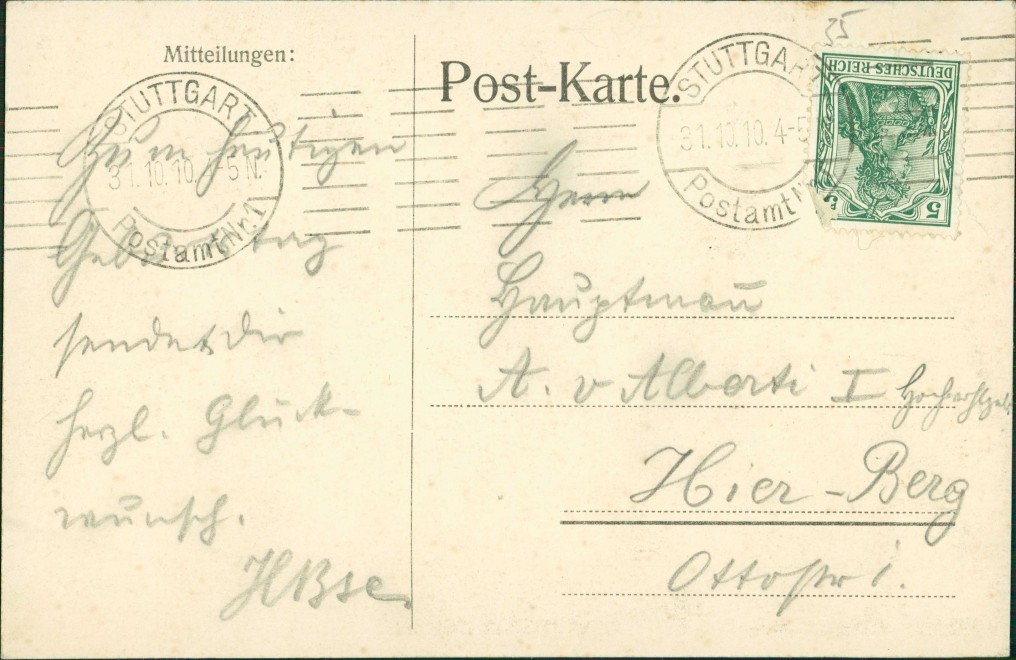 Mitteilungen:
Zum heutigen
Geburtstag
sendet dir
herzl. Glück-
wunsch.
Post-Karte.
35
STUTTGART
31.10.10.4-5N.
Postamt Nr.1
STUTTGART
31.10.10.4-5
Postamt Nr.
DEUTSCHES REICH
5
Herrn
Hauptmann
A. v Alberti I
Hier-Berg
Ottostr 1.